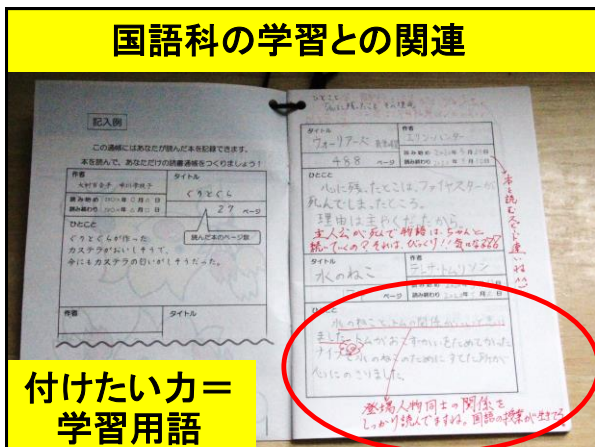 国語科の学習との関連
記入例
この通帳にはあなたが読んだ本を記録できます。
本を読んで、あなただけの読書通帳をつくりましょう！
作者
タイトル
ぐりとぐら
読み始め
読み終わり
27 ページ
読んだ本のページ数
ひとこと
ぐりとぐらが作った
カステラがおいしそうで、
今にもカステラの匂いがしそうだった。
作者
タイトル
タイトル
ウォーリアーズ
作者
エリン・ハンター
488 ページ
読み始め
読み終わり
ひとこと
心に残ったところは、ファイヤスターが
死んでしまったところ。
理由は主やくだたから。
主人公が死んで物語は、ちゃんと
続いていくの？それは、びっくり！！気になるなる
本を読むスピード速いね
タイトル
水のねこ
作者
ページ
読み始め
読み終わり
ひとこと
水のねことトムの関係が
ました。トムがおこずかいをためてかった
ナイフを水のねこのためにすてた所が
心にのこりました。
登場人物同士の関係を
しっかり読んでますね。国語の授業が生きてる
付けたい力＝
学習用語